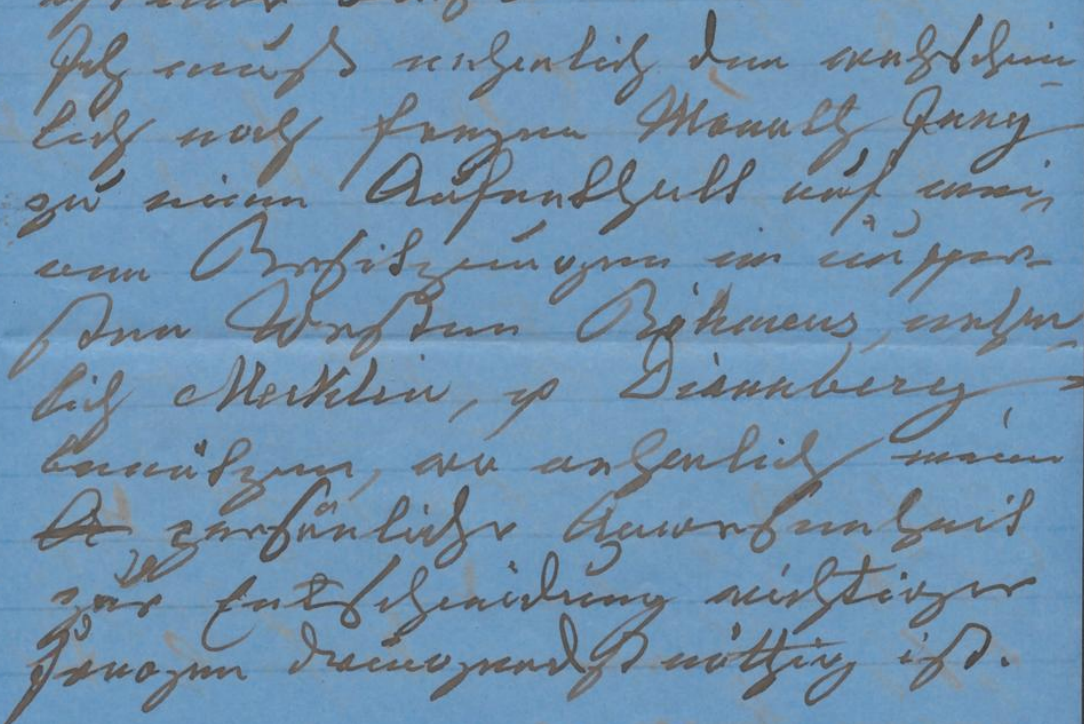 Ich muß nehmlich den wahrschein-
lich noch ganzen Monath Juny
zu einem Aufenthalt auf mei-
nen Besitzungen im äußer-
sten Westen Böhmens, nehm-
lich Merklin, Dianaberg
benützen, wo nehmlich meine
persönliche Anwesenheit
zur Entscheidung wichtiger
Fragen dringendst nöthig ist.